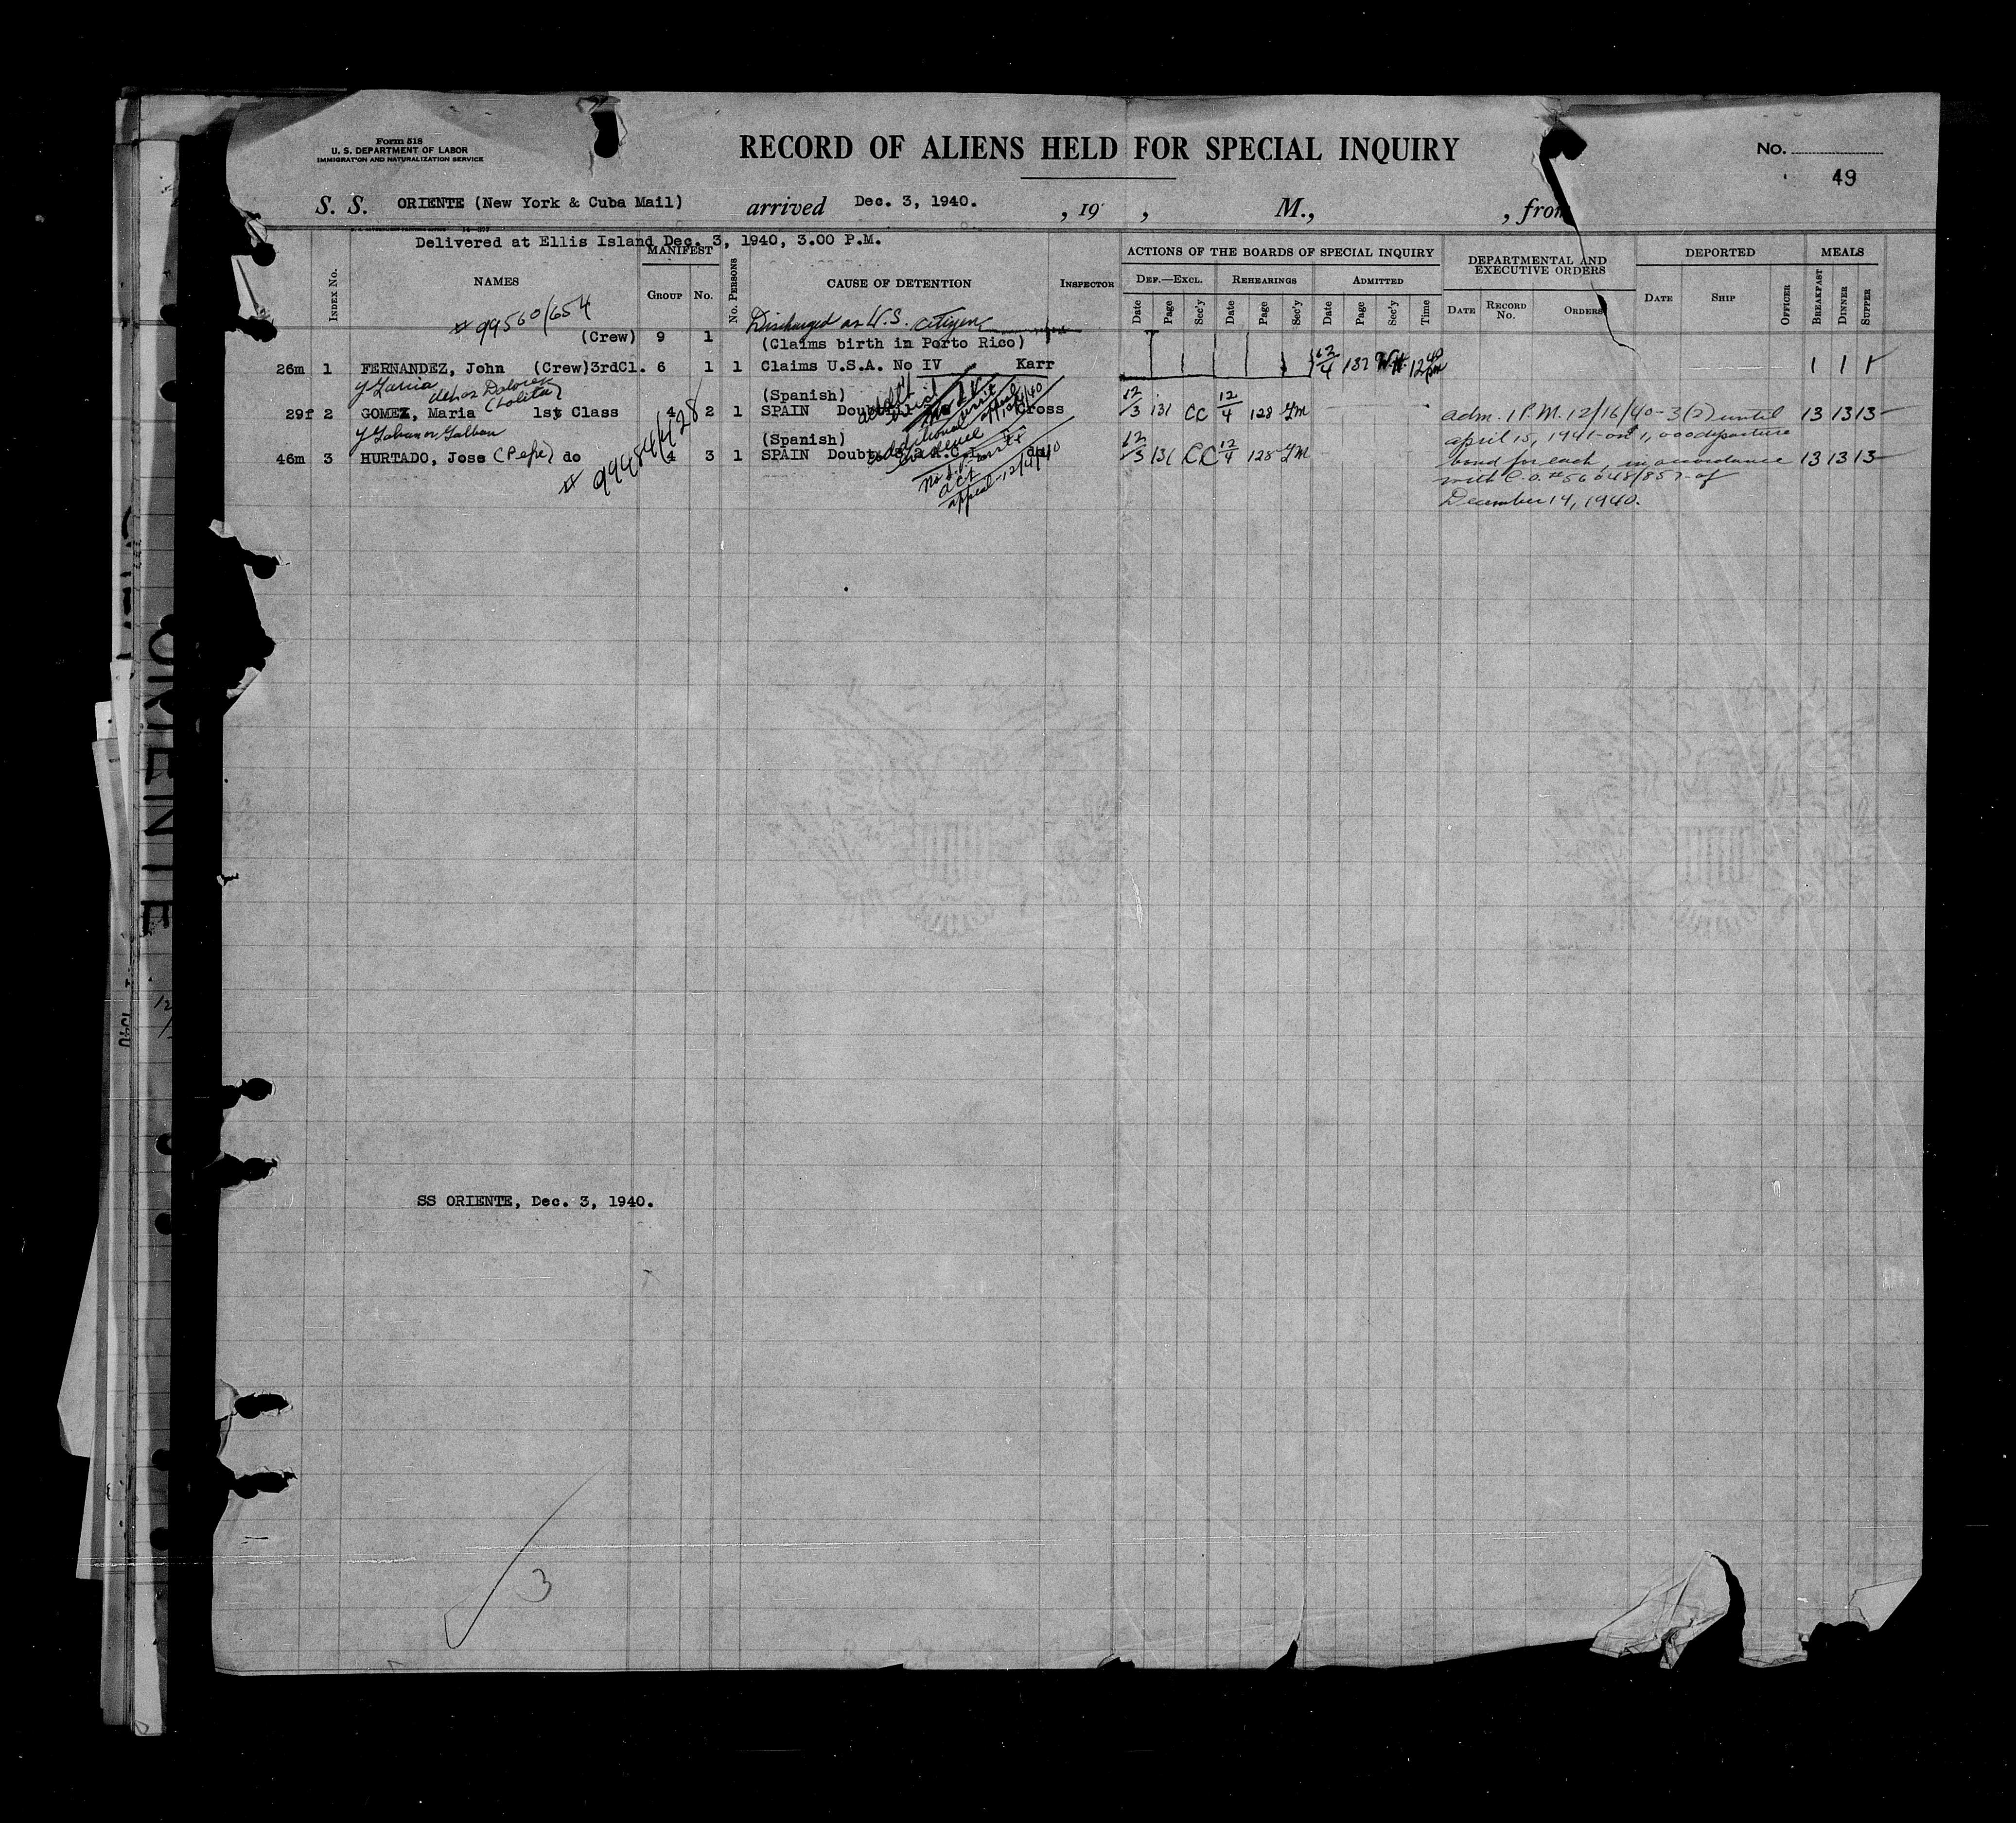 Form 518
U. S. DEPARTMENT OF LABOR
IMMIGRATION AND NATURALIZATION SERVICE
RECORD OF ALIENS HELD FOR SPECIAL INQUIRY
No.
49
S. S. ORIENTE (New York & Cuba Mail) arrived Dec. 3, 1940. , 19 , M., , from
Delivered at Ellis Island Dec. 3, 1940, 3.00 P.M.
INDEX No. NAMES MANIFEST GROUP No. No. PERSONS CAUSE OF DETENTION INSPECTOR
ACTIONS OF THE BOARDS OF SPECIAL INQUIRY
DEF.—EXCL. REHEARINGS ADMITTED
Date Page Sec'y Date Page Sec'y Date Page Sec'y Time
DEPARTMENTAL AND EXECUTIVE ORDERS
DATE RECORD No. ORDERS
DEPORTED
DATE SHIP OFFICER
MEALS
BREAKFAST DINNER SUPPER
# 99560/654 Discharged as U.S. citizen
(Crew) 9 1 (Claims birth in Porto Rico)
26m 1 FERNANDEZ, John (Crew) 3rdCl. 6 1 1 Claims U.S.A. No IV Karr 12/4 1 1 1
Dolores
(Lolita)
(Spanish)
29f 2 GOMEZ, Maria 1st Class 4 2 1 SPAIN Cross 12/3 131 CC 12/4 128 adm. 1 P.M. 12/16/40 - 3(2) until 13 13 13
april 15, 1941 - on 1,000 departure
y Galvan or Galban (Spanish)
46m 3 HURTADO, Jose (Pepe) do 4 3 1 SPAIN do 12/3 131 CC 12/4 128 bond for each, in accordance 13 13 13
# 99484/428
additional
evidence
appeal - 12/4/40
with C.O. # 56048/857 of
December 14, 1940.
SS ORIENTE, Dec. 3, 1940.
3
ORIENTE